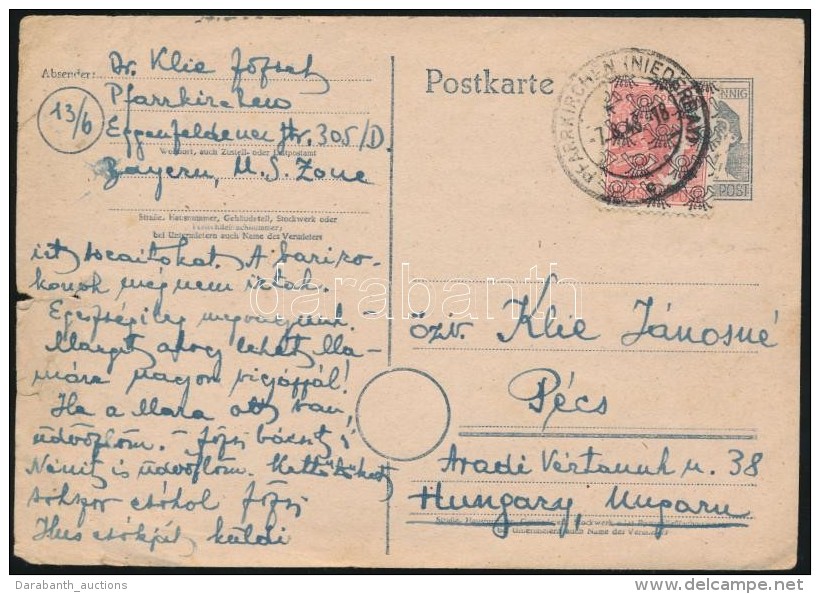 Absender: Dr. Klie József
13/6
Pfarrkirchen
Eggenfeldener Str. 305/D.
Wohnort, auch Zustell- oder Leitpostamt
Bayern, U.S. Zone
Straße, Hausnummer, Gebäudeteil, Stockwerk oder
Postschließfachnummer;
bei Untermietern auch Name des Vermieters
Postkarte
PFARRKIRCHEN (NIEDERBAY)
PFENNIG
POST
A bariro-
konok még nem írtak.
Egészségileg megvagyunk. -
Margit, ahogy lehet Ma-
mára nagyon vigázzál!
Ha a Mara ott van,
üdvözlöm. - Józsi bácsit,
Nénit is üdvözlöm.
sokszor csókol Józsi
csókját küldi
özv. Klie Jánosné
Pécs
Aradi Vértanuk u. 38
Hungary, Ungarn
Straße, Hausnummer, Gebäudeteil, Stockwerk oder Postschließfachnummer;
bei Untermietern auch Name des Vermieters
darabanth
Darabanth_auctions
delcampe.net